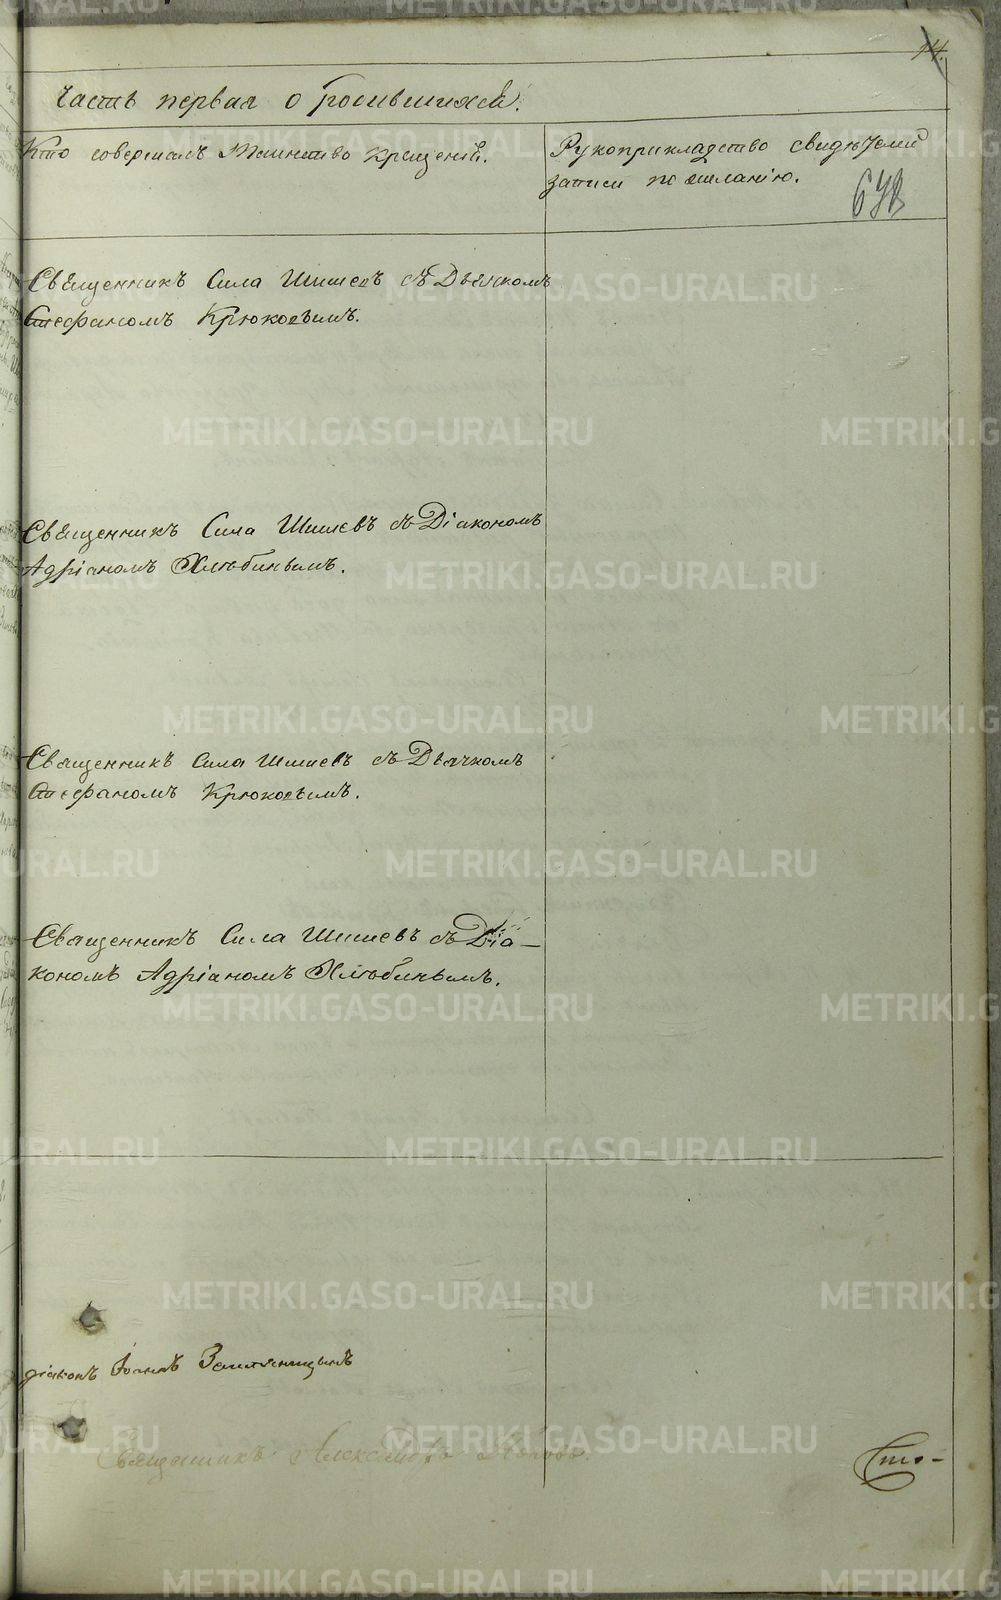 14.
Часть первая о родившихся.
Кто совершалъ Таинство крещенія.
Рукоприкладство свидѣтелей
записи по желанію.
Священникъ Сила Шишевъ съ Дьячкомъ
Стефаномъ Крюковымъ.
Священникъ Сила Шишевъ съ Діакономъ
Адріаномъ Хлюбинымъ.
Священникъ Сила Шишевъ съ Дьячкомъ
Стефаномъ Крюковымъ.
Священникъ Сила Шишевъ съ Діа-
кономъ Адріаномъ Хлюбинымъ.
діаконъ Іоаннъ
Священникъ Александръ Поповъ.
METRIKI.GASO-URAL.RU